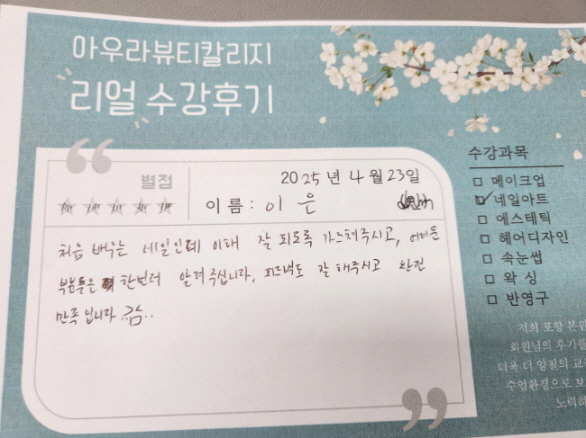 아우라뷰티칼리지
리얼 수강후기
별점
2025년 4월 23일
이름 : 이 은
처음 배우는 네일인데 이해 잘 되도록 가르쳐주시고, 어려운
부분들은 한번더 알려주십니다, 피드백도 잘 해주시고 완전
만족입니다
수강과목
□ 메이크업
☑ 네일아트
□ 에스테틱
□ 헤어디자인
□ 속눈썹
□ 왁싱
□ 반영구
저희 포항 본원
회원님의 후기를
더욱 더 양질의 교
수업환경으로 보
노력하